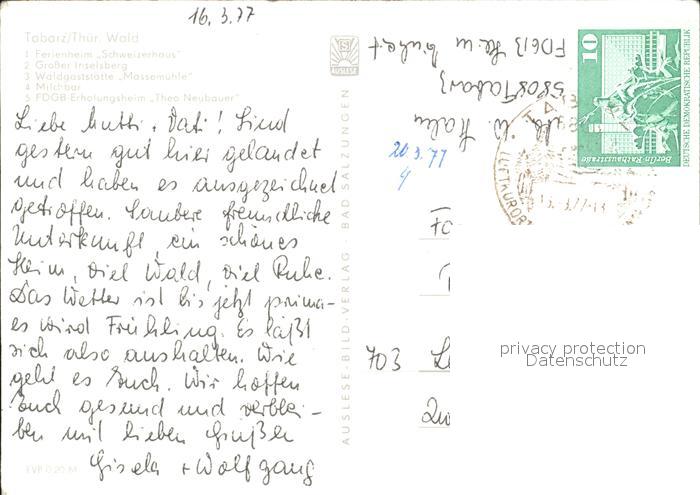 16.3.77
Tabarz/Thür. Wald
1 Ferienheim „Schweizerhaus"
2 Großer Inselsberg
3 Waldgaststätte „Massemühle"
4 Milchbar
5 FDGB Erholungsheim „Theo Neubauer"
Liebe Mutti, Vati! Sind
gestern gut hier gelandet
und haben es ausgezeichnet
getroffen. Saubere freundliche
Unterkunft, ein schönes
Heim, viel Wald, viel Ruhe.
Das Wetter ist bis jetzt prima-
es wird Frühling. Es läßt
sich also aushalten. Wie
geht es Euch. Wir hoffen
Euch gesund und verblei-
ben mit lieben Grüßen
Gisela + Wolfgang
EVP 0,20 M
AUSLESE-BILD-VERLAG · BAD SALZUNGEN
5808 Tabarz
20.3.77
703
10
DEUTSCHE DEMOKRATISCHE REPUBLIK
Berlin Rathausstraße
LUFTKURORT
privacy protection
Datenschutz